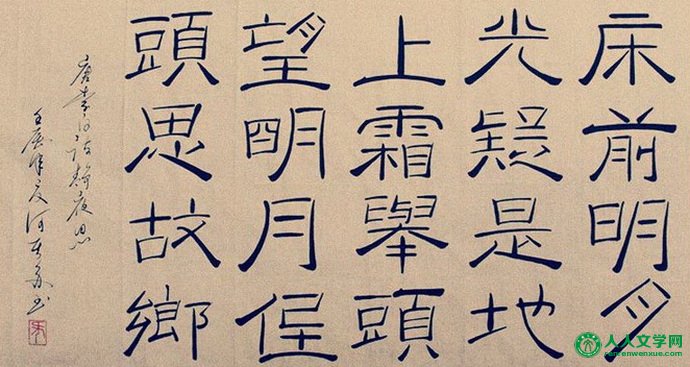 床前明月
光疑是地
上霜舉頭
望明月低
頭思故鄉
唐李白诗静夜思
壬辰年夏 书
人人文学网
renrenwenxue.com